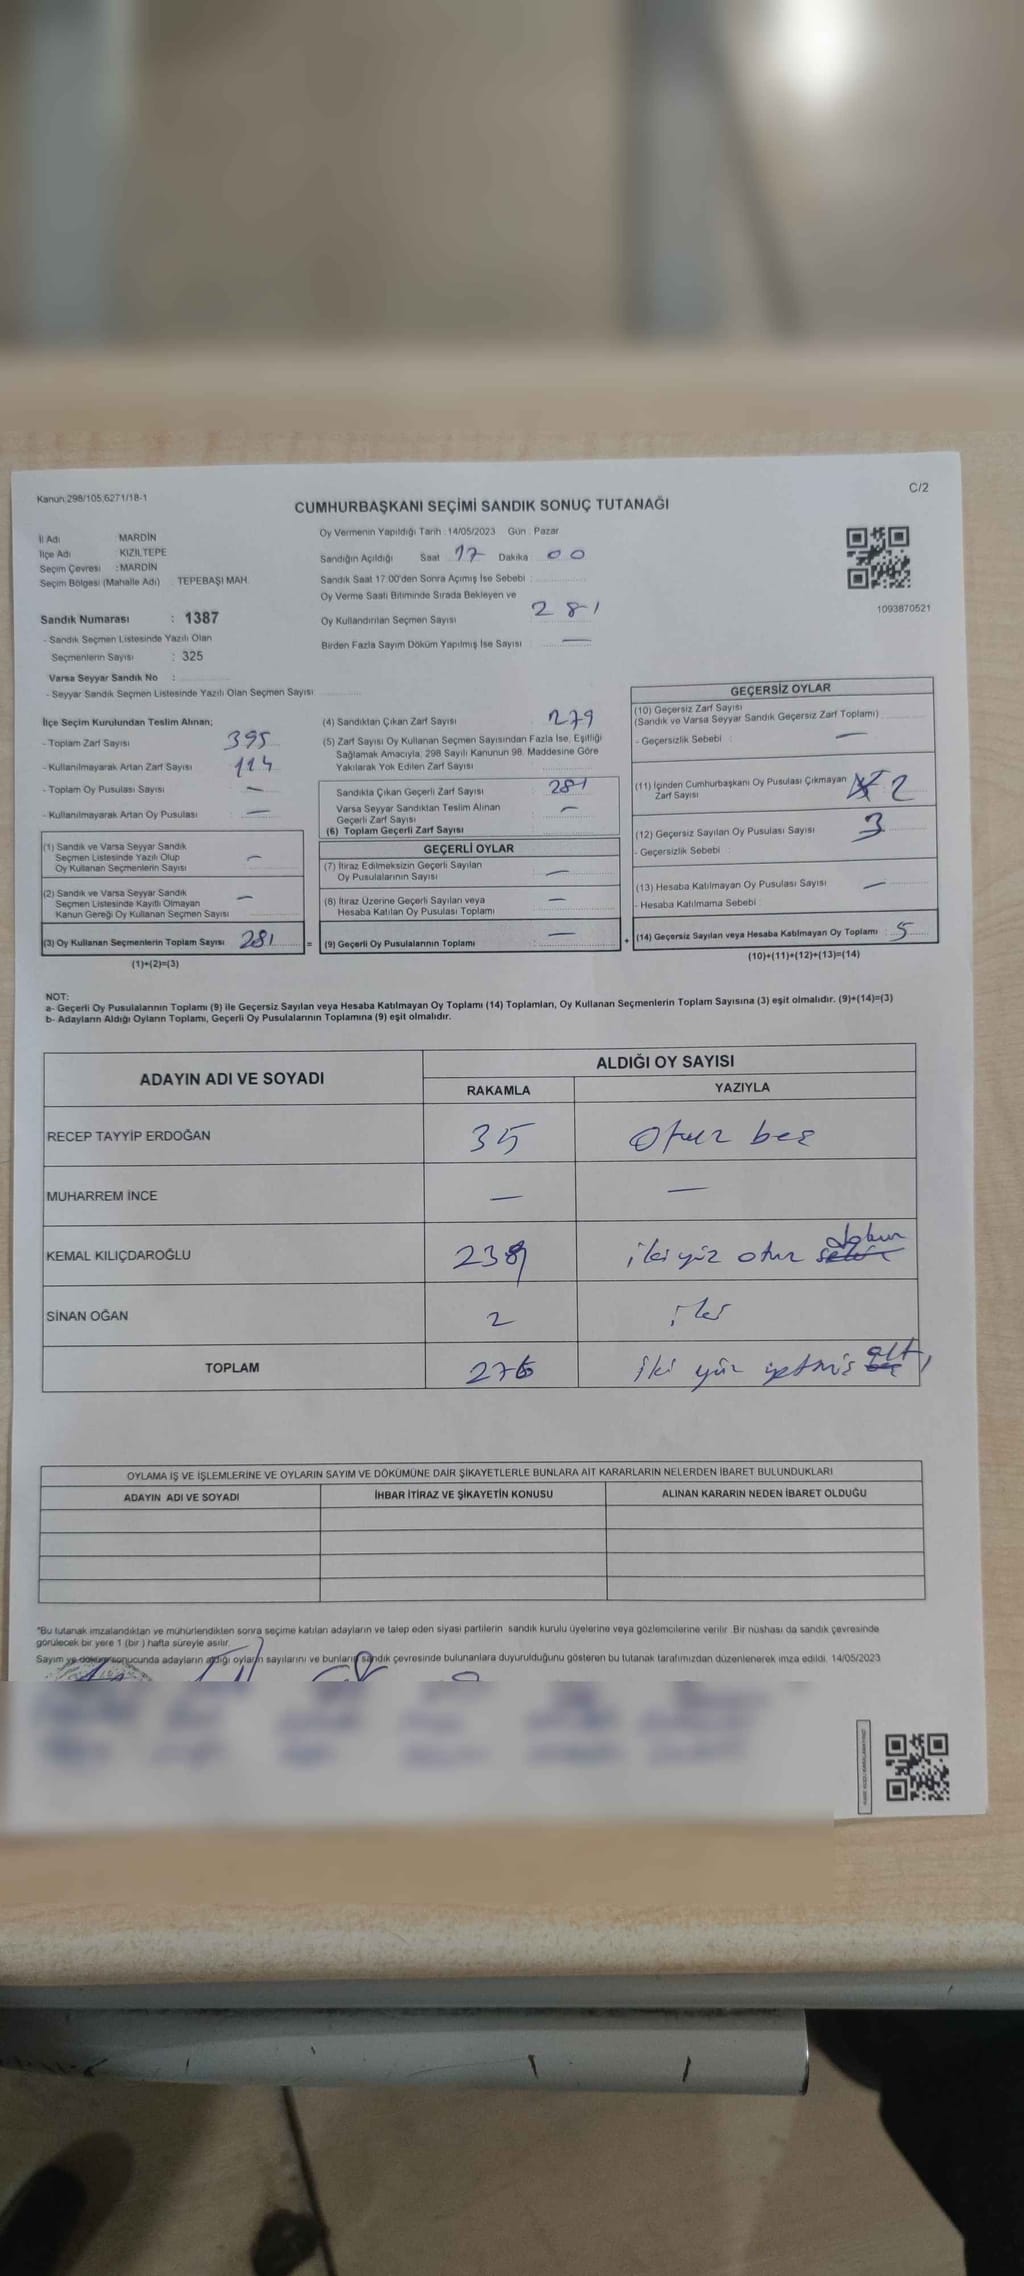 Kanun:298/105,6271/18-1
C/2
CUMHURBAŞKANI SEÇİMİ SANDIK SONUÇ TUTANAĞI
İl Adı : MARDİN
İlçe Adı : KIZILTEPE
Seçim Çevresi : MARDİN
Seçim Bölgesi (Mahalle Adı) : TEPEBAŞI MAH.
Sandık Numarası : 1387
- Sandık Seçmen Listesinde Yazılı Olan
Seçmenlerin Sayısı : 325
Varsa Seyyar Sandık No :
- Seyyar Sandık Seçmen Listesinde Yazılı Olan Seçmen Sayısı
Oy Vermenin Yapıldığı Tarih : 14/05/2023 Gün : Pazar
Sandığın Açıldığı Saat 17 Dakika 00
Sandık Saat 17:00'den Sonra Açımış İse Sebebi :
Oy Verme Saati Bitiminde Sırada Bekleyen ve
Oy Kullandırılan Seçmen Sayısı 281
Birden Fazla Sayım Döküm Yapılmış İse Sayısı : —
1093870521
İlçe Seçim Kurulundan Teslim Alınan;
- Toplam Zarf Sayısı 395
- Kullanılmayarak Artan Zarf Sayısı 114
- Toplam Oy Pusulası Sayısı : —
- Kullanılmayarak Artan Oy Pusulası : —
(1) Sandık ve Varsa Seyyar Sandık
Seçmen Listesinde Yazılı Olup
Oy Kullanan Seçmenlerin Sayısı —
(2) Sandık ve Varsa Seyyar Sandık
Seçmen Listesinde Kayıtlı Olmayan
Kanun Gereği Oy Kullanan Seçmen Sayısı —
(3) Oy Kullanan Seçmenlerin Toplam Sayısı 281 =
(1)+(2)=(3)
(4) Sandıktan Çıkan Zarf Sayısı 279
(5) Zarf Sayısı Oy Kullanan Seçmen Sayısından Fazla İse, Eşitliği
Sağlamak Amacıyla, 298 Sayılı Kanunun 98. Maddesine Göre
Yakılarak Yok Edilen Zarf Sayısı
Sandıkla Çıkan Geçerli Zarf Sayısı 281
Varsa Seyyar Sandıktan Teslim Alınan
Geçerli Zarf Sayısı —
(6) Toplam Geçerli Zarf Sayısı
GEÇERLİ OYLAR
(7) İtiraz Edilmeksizin Geçerli Sayılan
Oy Pusulalarının Sayısı —
(8) İtiraz Üzerine Geçerli Sayılan veya
Hesaba Katılan Oy Pusulası Toplamı —
(9) Geçerli Oy Pusulalarının Toplamı : — +
GEÇERSİZ OYLAR
(10) Geçersiz Zarf Sayısı
(Sandık ve Varsa Seyyar Sandık Geçersiz Zarf Toplamı)
- Geçersizlik Sebebi : —
(11) İçinden Cumhurbaşkanı Oy Pusulası Çıkmayan
Zarf Sayısı 2
(12) Geçersiz Sayılan Oy Pusulası Sayısı 3
- Geçersizlik Sebebi :
(13) Hesaba Katılmayan Oy Pusulası Sayısı —
- Hesaba Katılmama Sebebi
(14) Geçersiz Sayılan veya Hesaba Katılmayan Oy Toplamı : 5
(10)+(11)+(12)+(13)=(14)
NOT:
a- Geçerli Oy Pusulalarının Toplamı (9) ile Geçersiz Sayılan veya Hesaba Katılmayan Oy Toplamı (14) Toplamları, Oy Kullanan Seçmenlerin Toplam Sayısına (3) eşit olmalıdır. (9)+(14)=(3)
b- Adayların Aldığı Oyların Toplamı, Geçerli Oy Pusulalarının Toplamına (9) eşit olmalıdır.
ADAYIN ADI VE SOYADI ALDIĞI OY SAYISI
RAKAMLA YAZIYLA
RECEP TAYYİP ERDOĞAN 35 Otuz beş
MUHARREM İNCE — —
KEMAL KILIÇDAROĞLU 239 iki yüz otuz dokuz
SİNAN OĞAN 2 iki
TOPLAM 276 iki yüz yetmiş altı
OYLAMA İŞ VE İŞLEMLERİNE VE OYLARIN SAYIM VE DÖKÜMÜNE DAİR ŞİKAYETLERLE BUNLARA AİT KARARLARIN NELERDEN İBARET BULUNDUKLARI
ADAYIN ADI VE SOYADI İHBAR İTİRAZ VE ŞİKAYETİN KONUSU ALINAN KARARIN NEDEN İBARET OLDUĞU
"Bu tutanak imzalandıktan ve mühürlendikten sonra seçime katılan adayların ve talep eden siyasi partilerin sandık kurulu üyelerine veya gözlemcilerine verilir. Bir nüshası da sandık çevresinde
görülecek bir yere 1 (bir ) hafta süreyle asılır.
Sayım ve döküm sonucunda adayların aldığı oyların sayılarını ve bunların sandık çevresinde bulunanlara duyurulduğunu gösteren bu tutanak tarafımızdan düzenlenerek imza edildi. 14/05/2023